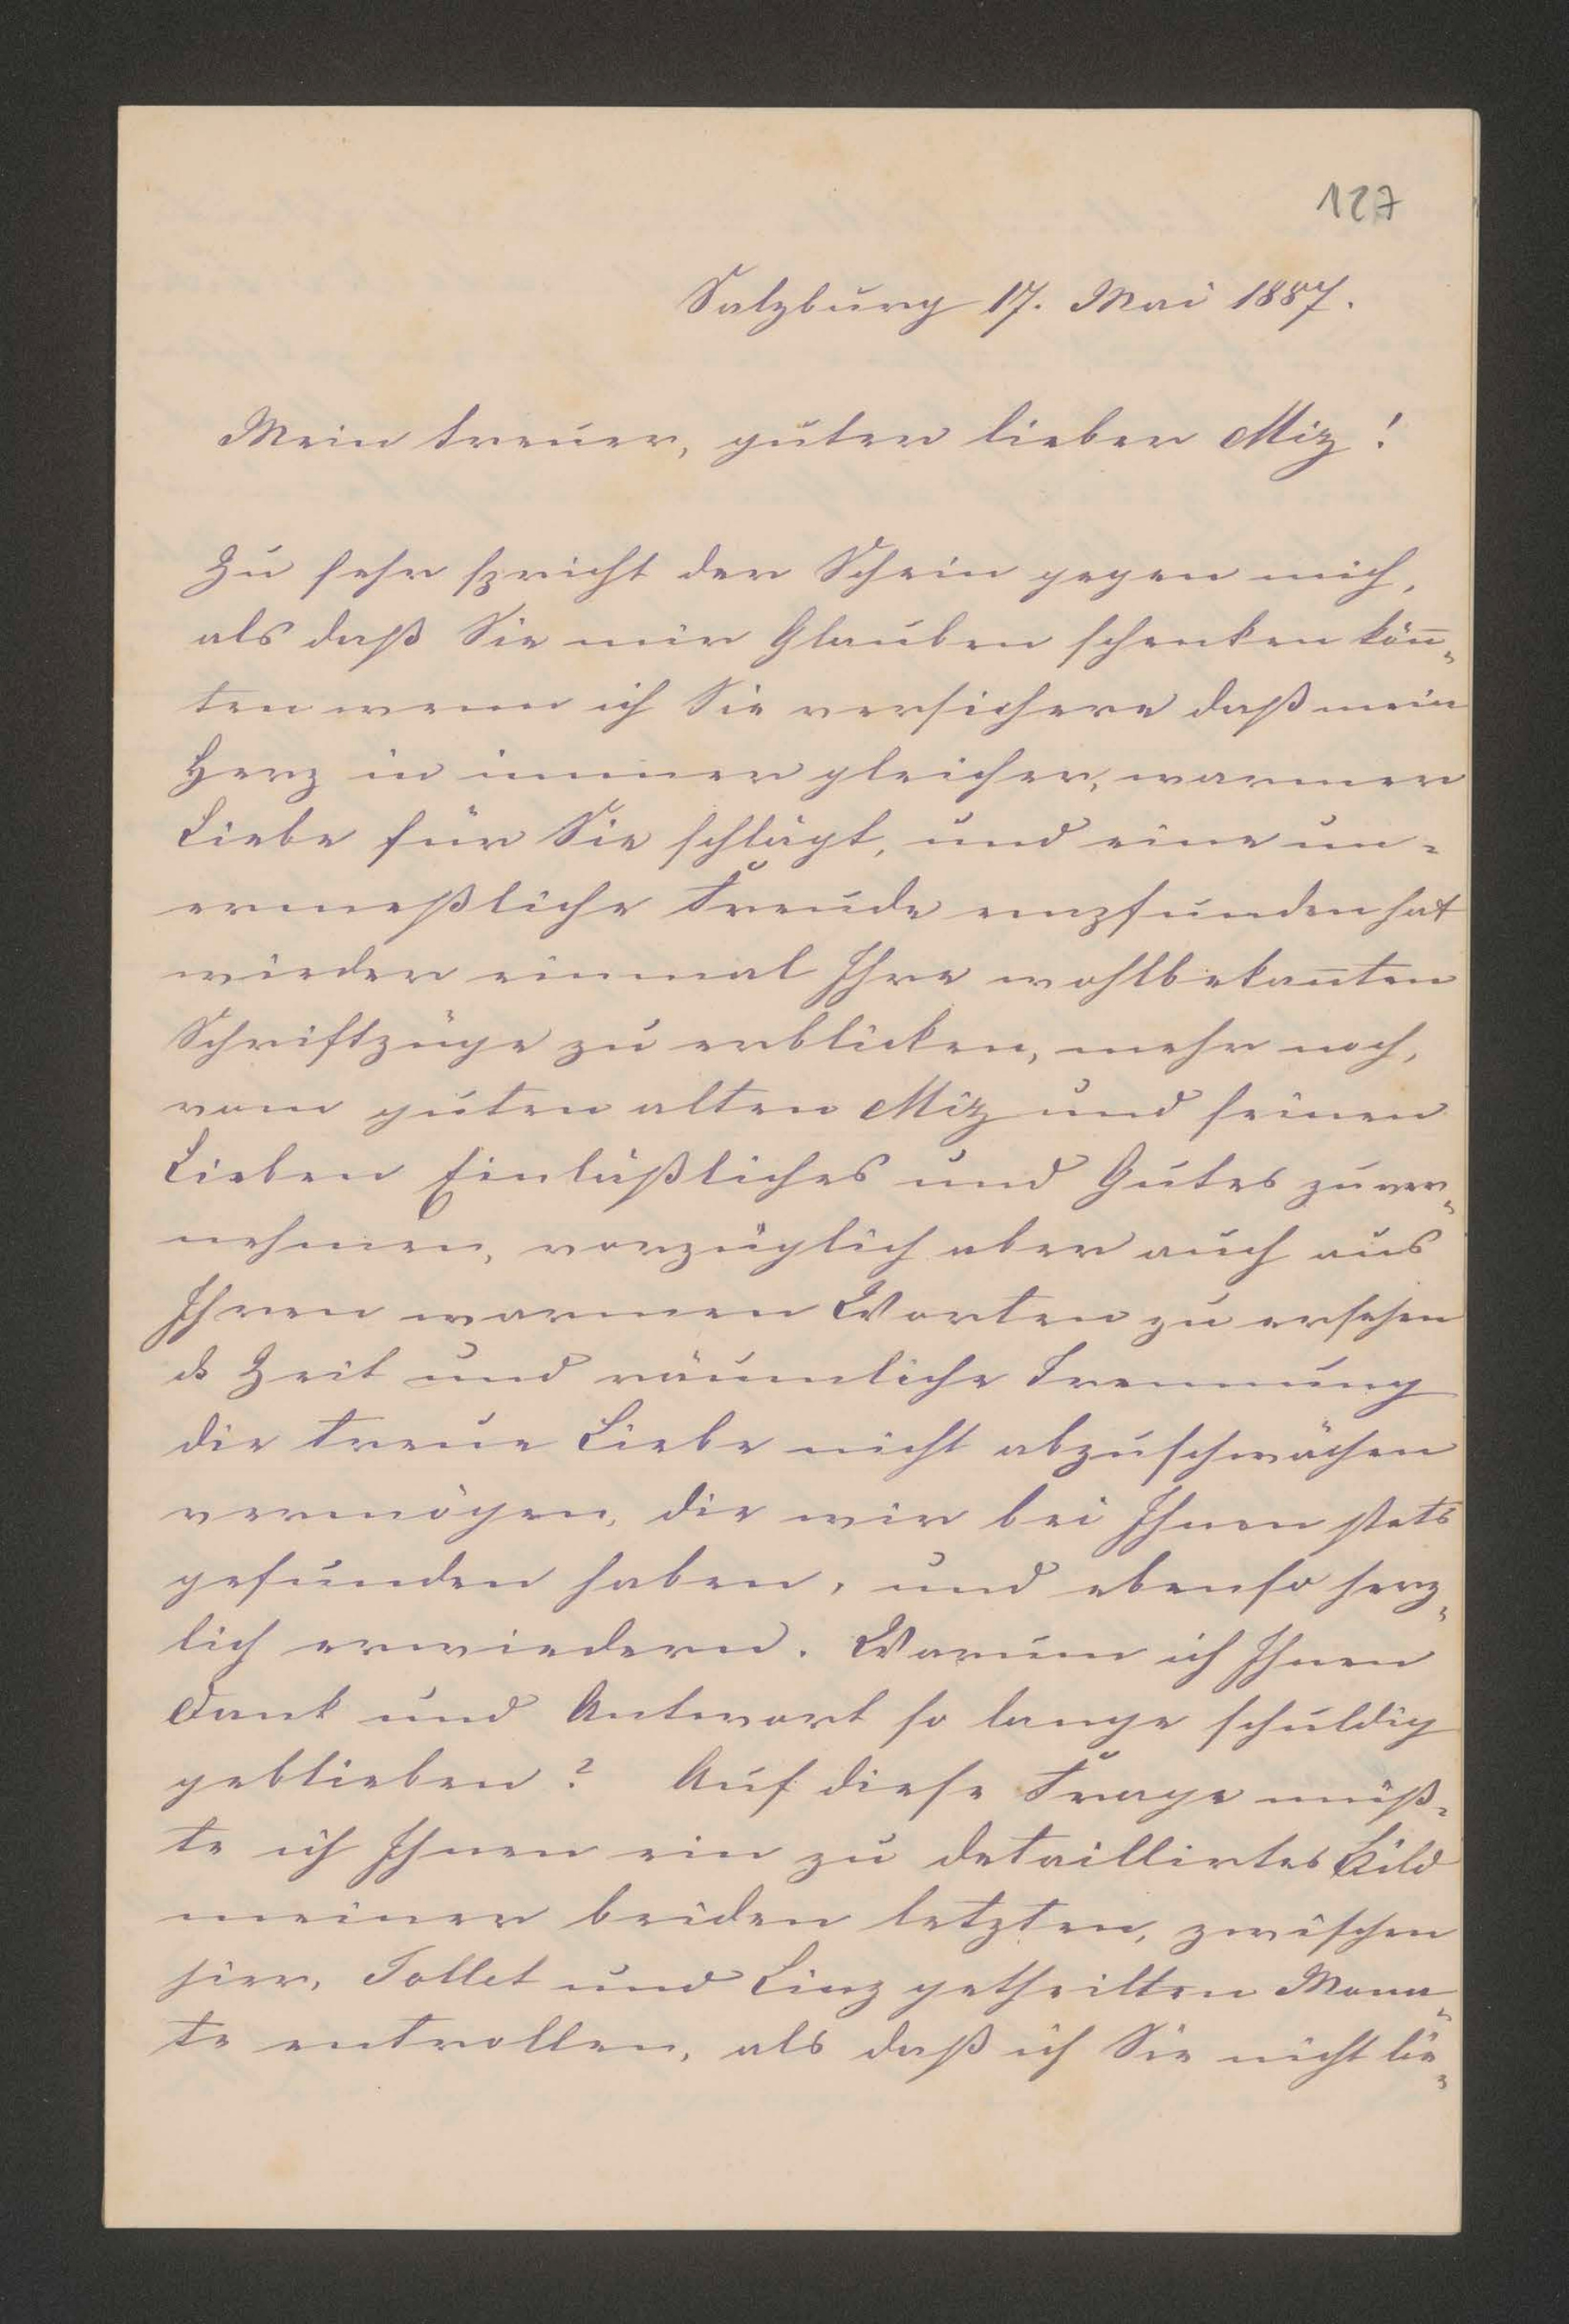 127
Salzburg 17. Mai 1887.
Mein treuer, guter lieber Miz!
Zu sehr spricht der Schein gegen mich,
als daß Sie mir Glauben schenken kön̄„
ten wenn ich Sie versichere daß mein
Herz in immer gleicher, warmer
Liebe für Sie schlägt, und eine un„
ermeßliche Freude empfunden hat
wieder einmal Ihre wohlbekan̄ten
Schriftzüge zu erblicken, mehr noch,
vom guten alten Miz und seinen
Lieben Einläßliches und Gutes zu ver„
nehmen, vorzüglich aber auch aus
Ihren warmen Worten zu ersehen
ds Zeit und räumliche Trennung
die treue Liebe nicht abzuschwächen
vermögen, die wir bei Ihnen stets
gefunden haben, und ebenso herz„
lich erwiedern. Warum ich Ihnen
Dank und Antwort so lange schuldig
geblieben? Auf diese Frage müß„
te ich Ihnen ein zu detaillirtes Bild
meiner beiden letzten, zwischen
hier, Tollet und Linz getheilten Mona„
te entrollen, als daß ich Sie nicht lie„